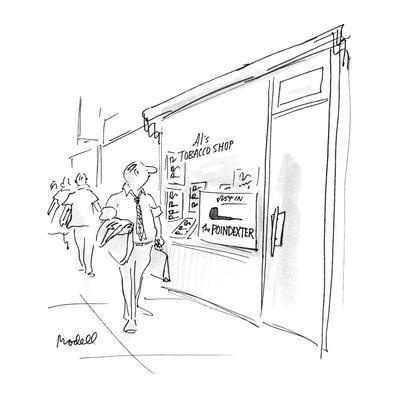 Al's
TOBACCO SHOP
JUST IN
the POINDEXTER
Modell